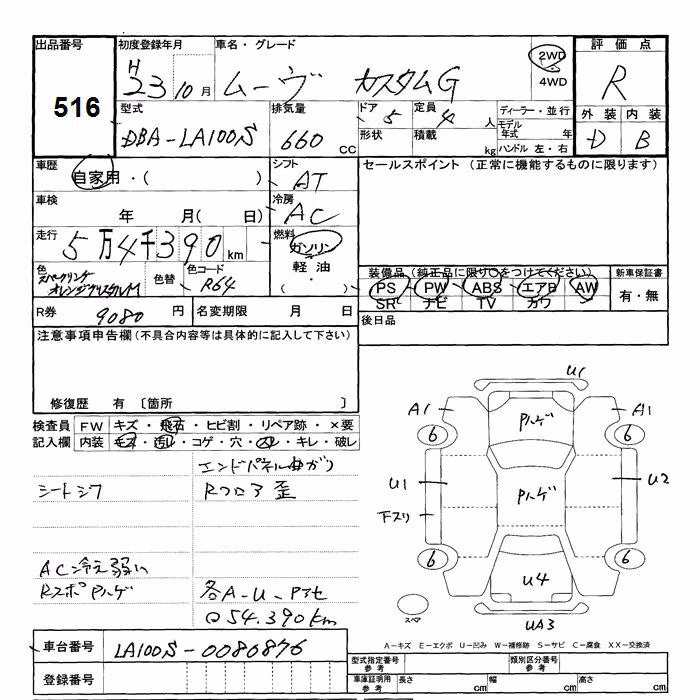 出品番号 初度登録年月 車名・グレード 評価点
516
H23 10月 ムーヴ カスタムG 2WD 4WD R
型式 排気量 ドア 定員 ディーラー・並行 外装 内装
DBA-LA100S 660 CC 5 4人 モデル年式 年 D B
形状 積載 kg ハンドル 左・右
車歴 シフト セールスポイント (正常に機能するものに限ります)
自家用・( ) AT
車検 冷房
年 月( 日) AC
走行 燃料
5万4千390km ガソリン
軽油
・( )
色 色替 色コード
スパークリングオレンジクリスタルM R64
装備品(純正品に限り○をつけてください) 新車保証書
PS PW ABS エアB AW 有・無
SR ナビ TV カワ
R券 9080円 名変期限 月 日 後日品
注意事項申告欄(不具合内容等は具体的に記入して下さい)
修復歴 有 〔箇所 〕
検査員 FW キズ・飛石・ヒビ割・リペア跡・×要
記入欄 内装 キズ・汚レ・コゲ・穴・スレ・キレ・破レ
エンドパネル曲がり
シートシワ Rフロア歪
AC冷え弱い
Rスポ Pハゲ 各A-U、Pアセ
54,390km
U1
A1 Pハゲ A1
6 6
U1 Pハゲ U2
下スリ
6 6
U4
スペア UA3
A-キズ E-エクボ U-凹み W-補修跡 S-サビ C-腐食 XX-交換済
車台番号 LA100S-0080876
登録番号
型式指定番号 参考 類別区分番号 参考
車庫証明用 参考 長さ cm 幅 cm 高さ cm